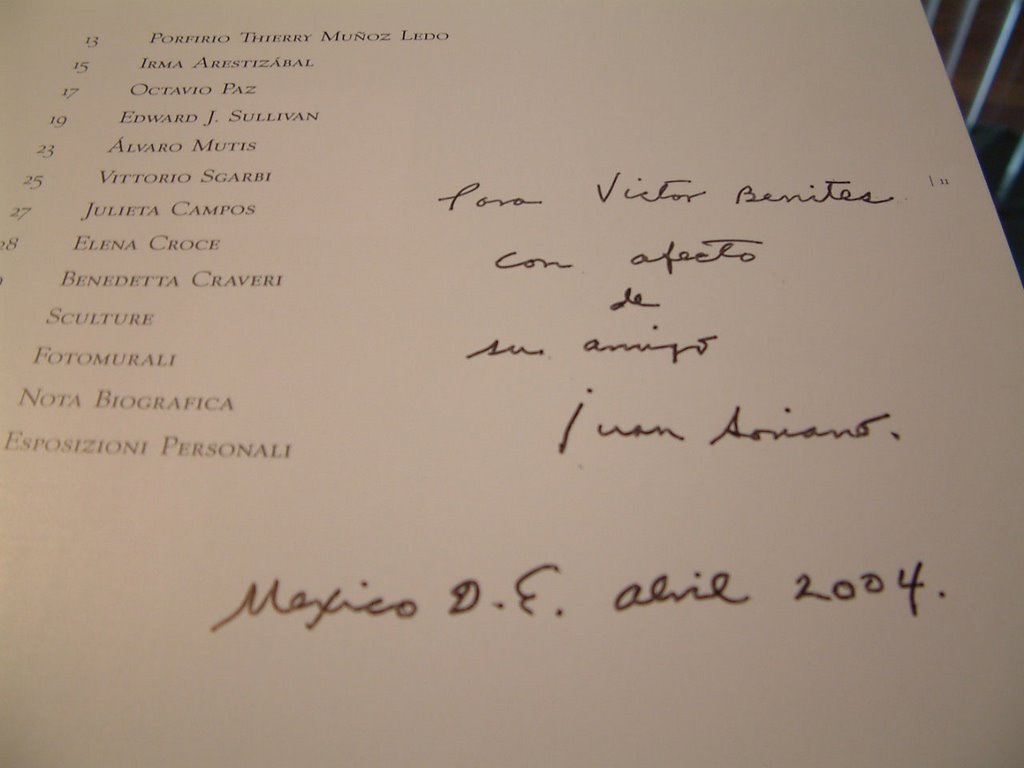 13 Porfirio Thierry Muñoz Ledo
15 Irma Arestizábal
17 Octavio Paz
19 Edward J. Sullivan
23 Álvaro Mutis
25 Vittorio Sgarbi
27 Julieta Campos
28 Elena Croce
Benedetta Craveri
Sculture
Fotomurali
Nota Biografica
Esposizioni Personali
| 11
Para Victor Benites
con afecto
de
su amigo
Juan Soriano.
Mexico D.F. abril 2004.